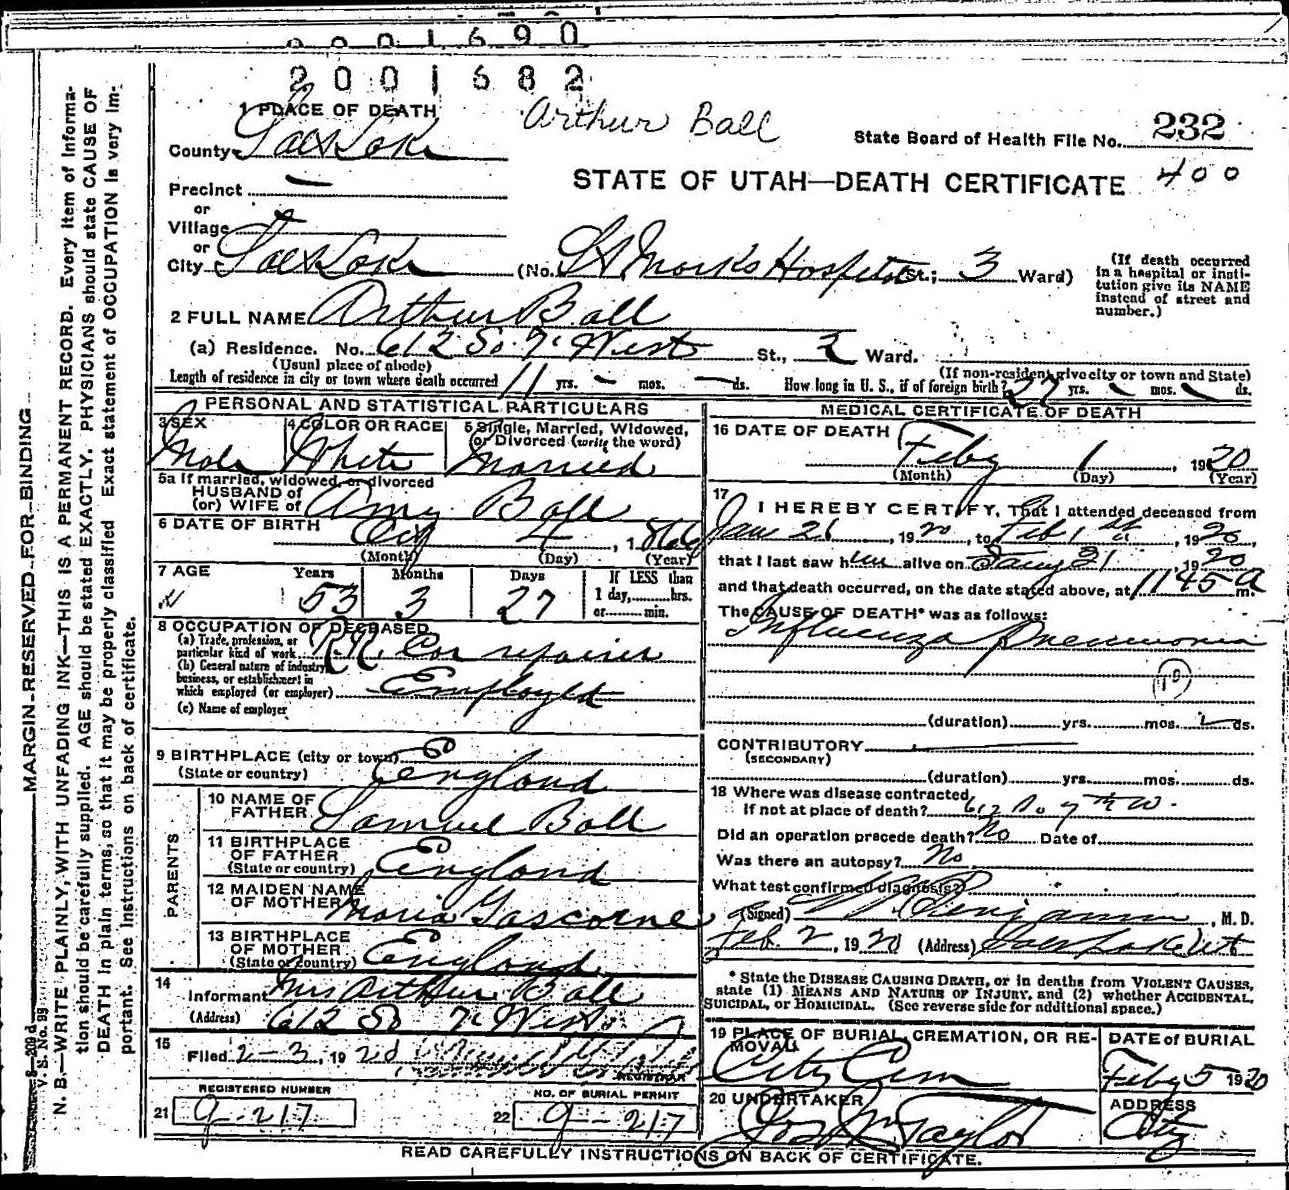 0001690
2001682
1 PLACE OF DEATH
Arthur Ball
State Board of Health File No. 232
County Salt Lake
STATE OF UTAH—DEATH CERTIFICATE 400
Precinct —
or
Village
or
City Salt Lake (No. St Marks Hospital St.; 3 Ward)
(If death occurred in a hospital or institution give its NAME instead of street and number.)
2 FULL NAME Arthur Ball
(a) Residence. No. 612 So. 7th West St., 2 Ward.
(Usual place of abode) (If non-resident give city or town and State)
Length of residence in city or town where death occurred 11 yrs. — mos. — ds. How long in U. S., if of foreign birth? 27 yrs. — mos. — ds.
PERSONAL AND STATISTICAL PARTICULARS
3 SEX Male
4 COLOR OR RACE White
5 Single, Married, Widowed, or Divorced (write the word) Married
5a If married, widowed, or divorced
HUSBAND of
(or) WIFE of Amy Ball
6 DATE OF BIRTH Oct 4, 1866
(Month) (Day) (Year)
7 AGE Years 53 Months 3 Days 27 If LESS than 1 day,......hrs. or......min.
8 OCCUPATION OF DECEASED
(a) Trade, profession, or particular kind of work R.R. Car repairer
(b) General nature of industry, business, or establishment in which employed (or employer) Employed
(c) Name of employer
9 BIRTHPLACE (city or town)
(State or country) England
PARENTS
10 NAME OF FATHER Samuel Ball
11 BIRTHPLACE OF FATHER
(State or country) England
12 MAIDEN NAME OF MOTHER Maria Gascorne
13 BIRTHPLACE OF MOTHER
(State or country) England
14 Informant Mrs Arthur Ball
(Address) 612 So 7th West
15 Filed 2-3, 1920
REGISTRAR
REGISTERED NUMBER
21 9-217
NO. OF BURIAL PERMIT
22 9-217
MEDICAL CERTIFICATE OF DEATH
16 DATE OF DEATH
Feby 1, 1920
(Month) (Day) (Year)
17 I HEREBY CERTIFY, That I attended deceased from
Jan 26, 1920, to Feb 1st, 1920,
that I last saw him alive on Jany 31 1920
and that death occurred, on the date stated above, at 1145 a m.
The CAUSE OF DEATH* was as follows:
Influenza Pneumonia
10
(duration) yrs. mos. ds.
CONTRIBUTORY —
(SECONDARY)
(duration) yrs. mos. ds.
18 Where was disease contracted
if not at place of death? 612 So. 7th W.
Did an operation precede death? No Date of
Was there an autopsy? No
What test confirmed diagnosis?
(Signed) Benjamin, M. D.
Feb. 2, 1920 (Address) Salt Lake Ut
* State the DISEASE CAUSING DEATH, or in deaths from VIOLENT CAUSES, state (1) MEANS AND NATURE OF INJURY, and (2) whether ACCIDENTAL, SUICIDAL, OR HOMICIDAL. (See reverse side for additional space.)
19 PLACE OF BURIAL, CREMATION, OR REMOVAL City Cem
DATE of BURIAL Feby 5 1920
20 UNDERTAKER Jos Wm Taylor
ADDRESS City
READ CAREFULLY INSTRUCTIONS ON BACK OF CERTIFICATE.
MARGIN RESERVED FOR BINDING
N. B.—WRITE PLAINLY, WITH UNFADING INK—THIS IS A PERMANENT RECORD. Every item of information should be carefully supplied. AGE should be stated EXACTLY. PHYSICIANS should state CAUSE OF DEATH in plain terms, so that it may be properly classified. Exact statement of OCCUPATION is very important. See Instructions on back of certificate.
V. S. No. 99